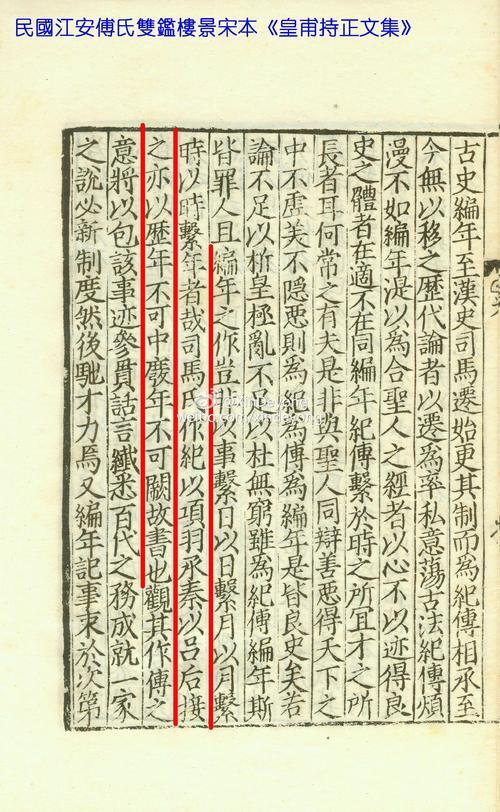 民國江安傅氏雙鑑樓景宋本《皇甫持正文集》
古史編年至漢史司馬遷始更其制而爲紀傳相承至
今無以移之歷代論者以遷爲率私意蕩古法紀傳煩
漫不如編年湜以爲合聖人之經者以心不以迹得良
史之體者在適不在同編年紀傳繫於時之所宜才之所
長者耳何常之有夫是非與聖人同辯善惡得天下之
中不虛美不隱惡則爲紀爲傳爲編年是皆良史矣若
論不足以析皇極亂不足以杜無窮雖爲紀傳編年斯
皆罪人且編年之作豈非以事繫日以日繫月以月繫
時以時繫年者哉司馬氏作紀以項羽承秦以呂后接
之亦以歷年不可中廢年不可闕故書也觀其作傳之
意將以包該事迹參貫話言纖悉百代之務成就一家
之說必新制度然後馳才力焉又編年記事束於次第
@XinDeyong
weibo.com/xindeyong